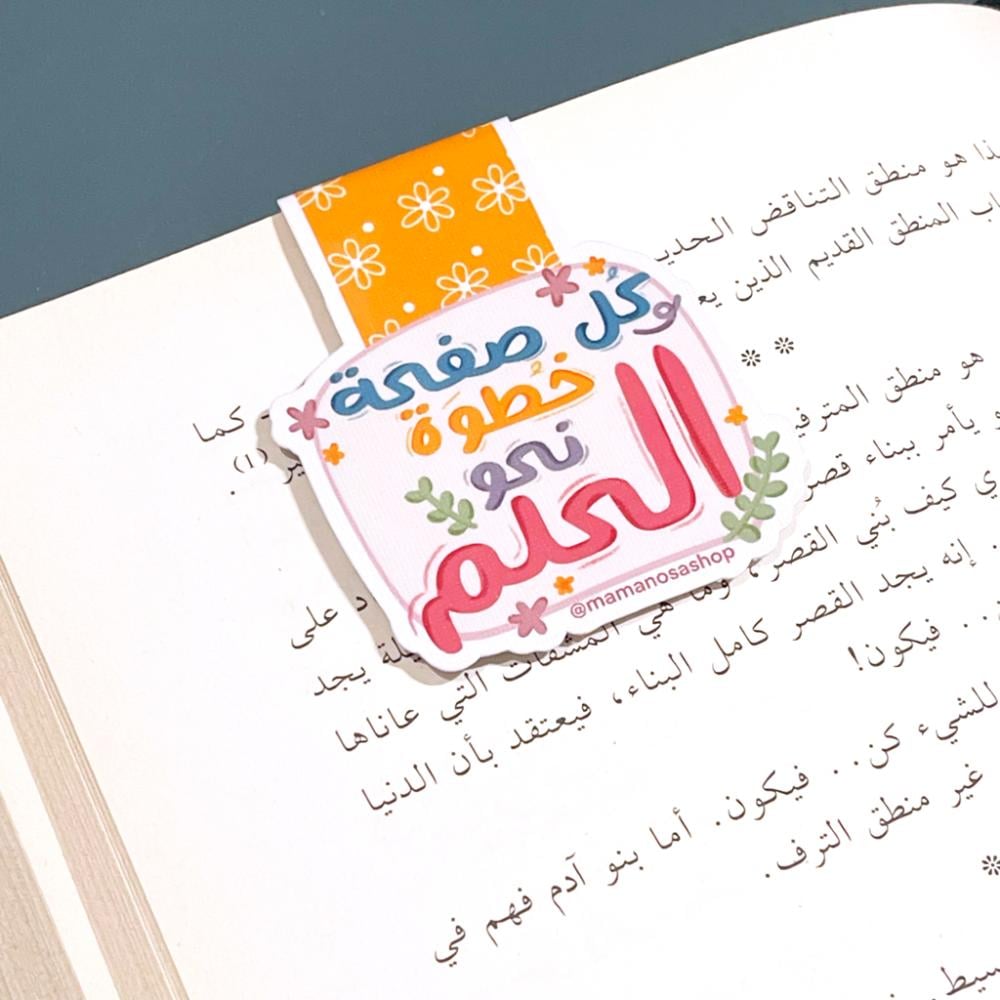 وكُل صفحة
خُطوَة
نحو
الحلم
@mamanosashop
هو منطق التناقض الحديـ
المنطق القديم الذين يعـ
❊ ❊
هو منطق المترفيـ
كما
يأمر ببناء قصر
(١) .
كيف بُني القصر، وما هي المشقات التي عاناها
على
إنه يجد القصر كامل البناء، فيعتقد بأن الدنيا
يجد
فيكون!
للشيء كن.. فيكون. أما بنو آدم فهم في
غير منطق الترف.
❊